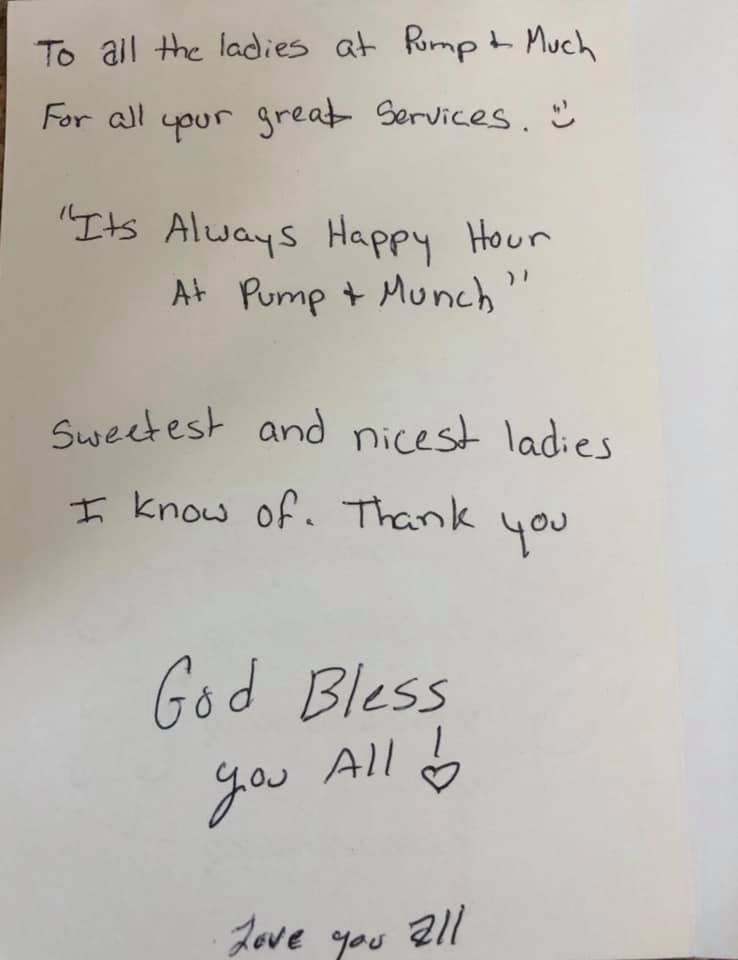 To all the ladies at Pump + Much
For all your great Services. :)
"Its Always Happy Hour
At Pump + Munch"
Sweetest and nicest ladies
I know of. Thank you
God Bless
you All!
Love you all